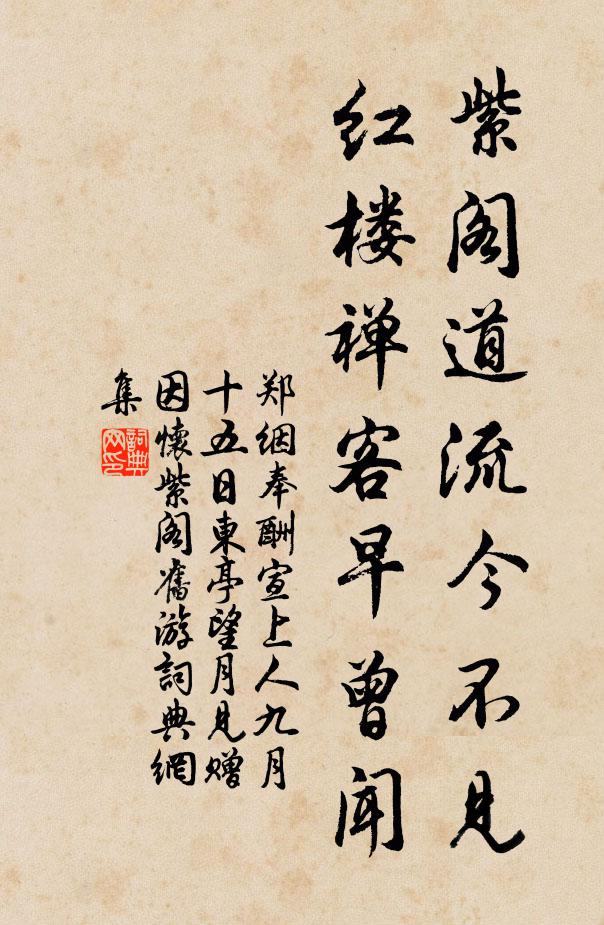 紫阁道流今不见
红楼禅客早曾闻
郑絪奉酬宣上人九月
十五日東亭望月見赠
因懷紫阁舊游詞典網
集
詞典网印